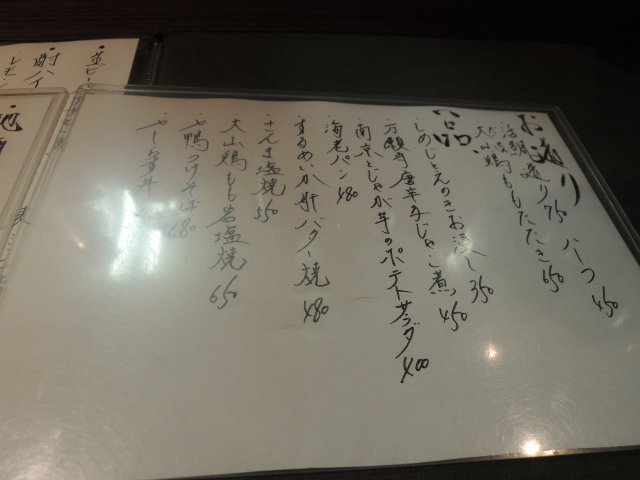 お造り
活鯛造り 750 ハーフ 450
大山鶏ももたたき 650
一品
しめじとえのきお浸し 350
万願寺唐辛子じゃこ煮 450
南京とじゃが芋のポテトサラダ 400
海老パン 480
するめいか肝バター焼 480
さんま塩焼 550
大山鶏もも岩塩焼 650
鴨つけそば 680
酎ハイ
レモン